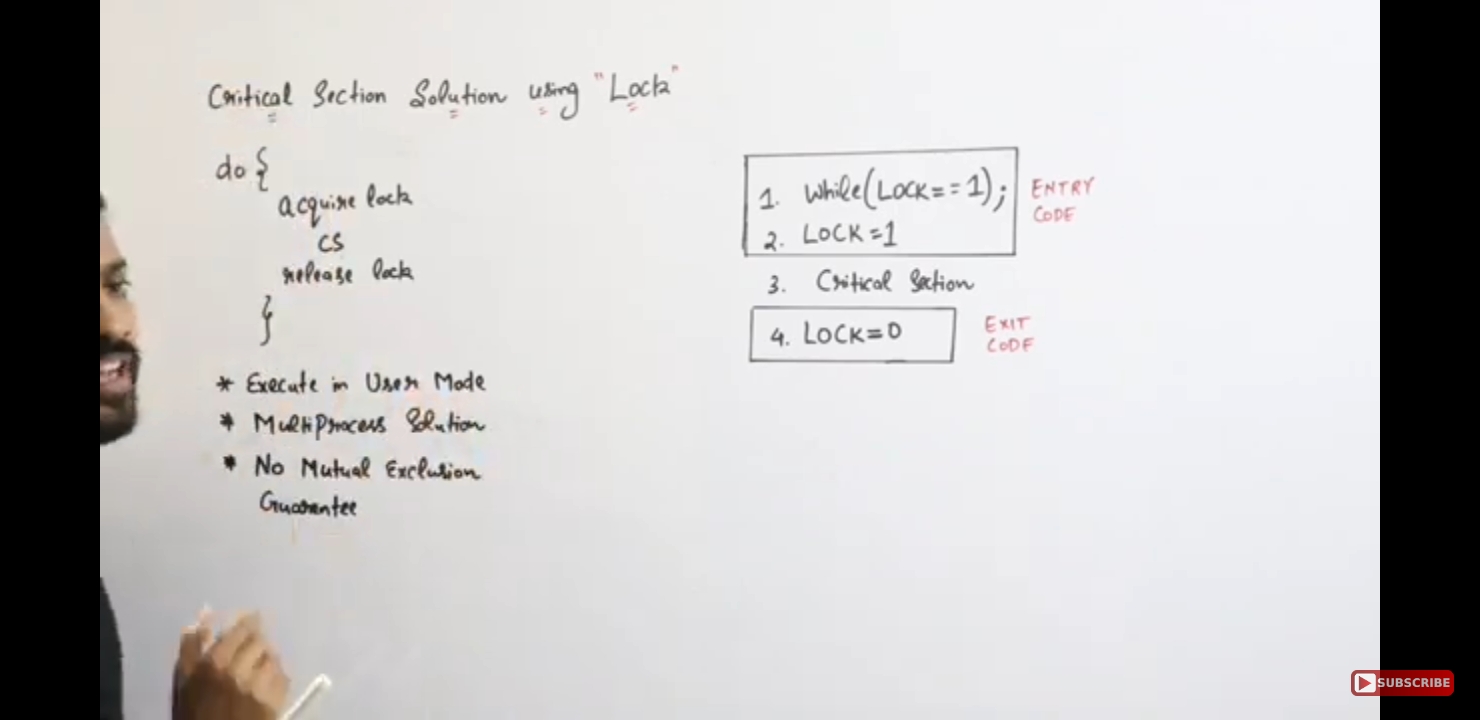 Critical Section Solution using "Lock"
do {
acquire lock
CS
release lock
}
* Execute in User Mode
* Multiprocess Solution
* No Mutual Exclusion
Guarantee
1. While(LOCK==1);
2. LOCK=1
ENTRY
CODE
3. Critical Section
4. LOCK=0
EXIT
CODE
SUBSCRIBE